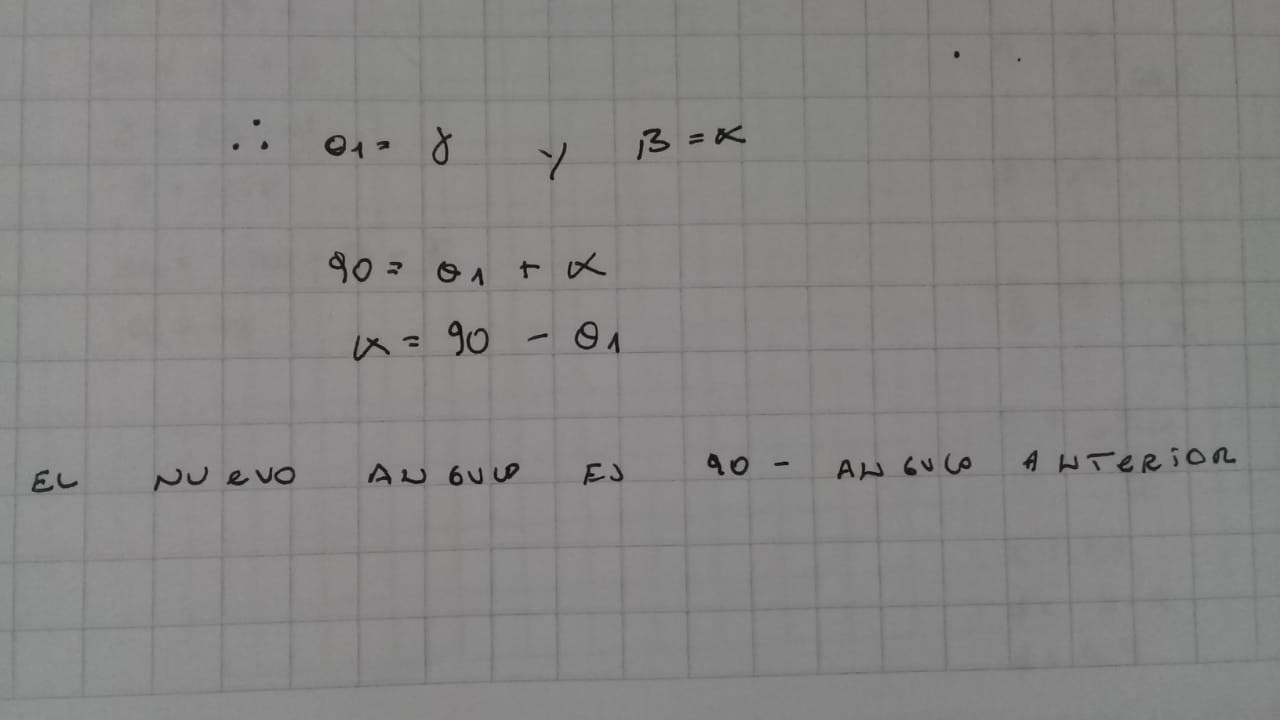 ∴ θ1 = γ y β = α
90 = θ1 + α
α = 90 - θ1
EL NUEVO ANGULO ES 90 - ANGULO ANTERIOR